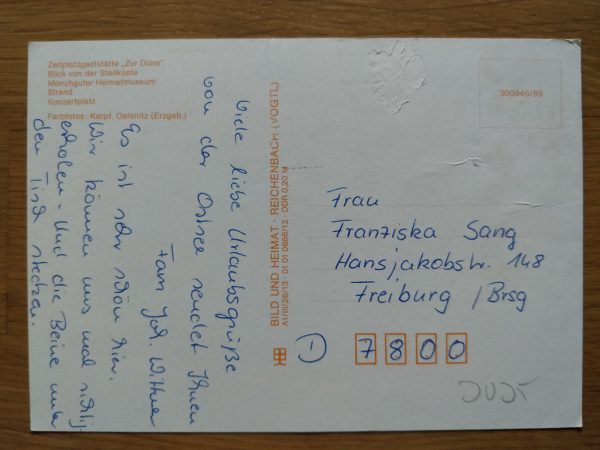 Zeltplatzgaststätte „Zur Düne"
Blick von der Steilküste
Mönchguter Heimatmuseum
Strand
Konzertplatz
Farbfotos: Karpf, Oelsnitz (Erzgeb.)
Viele liebe Urlaubsgrüße
von der Ostsee sendet Ihnen
Fam. Joh.
Es ist sehr schön hier.
Wir können uns mal richtig
erholen - und die Beine unter
den Tisch stecken.
BILD UND HEIMAT · REICHENBACH (VOGTL)
A1/III/26/13 01 01 0686/12 · DDR 0,20 M
300946/89
Frau
Franziska Sang
Hansjakobstr. 148
Freiburg /Brsg
7800